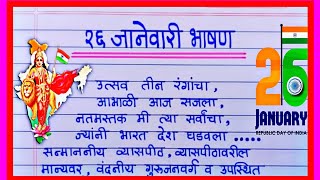 २६ जानेवारी भाषण
उत्सव तीन रंगांचा ,
आभाळी आज सजला ,
नतमस्तक मी त्या सर्वांचा ,
ज्यांनी भारत देश घडवला .....
सन्माननीय व्यासपीठ , व्यासपीठावरील
मान्यवर , वंदनीय गुरुजनवर्ग व उपस्थित
26
JANUARY
REPUBLIC DAY OF INDIA